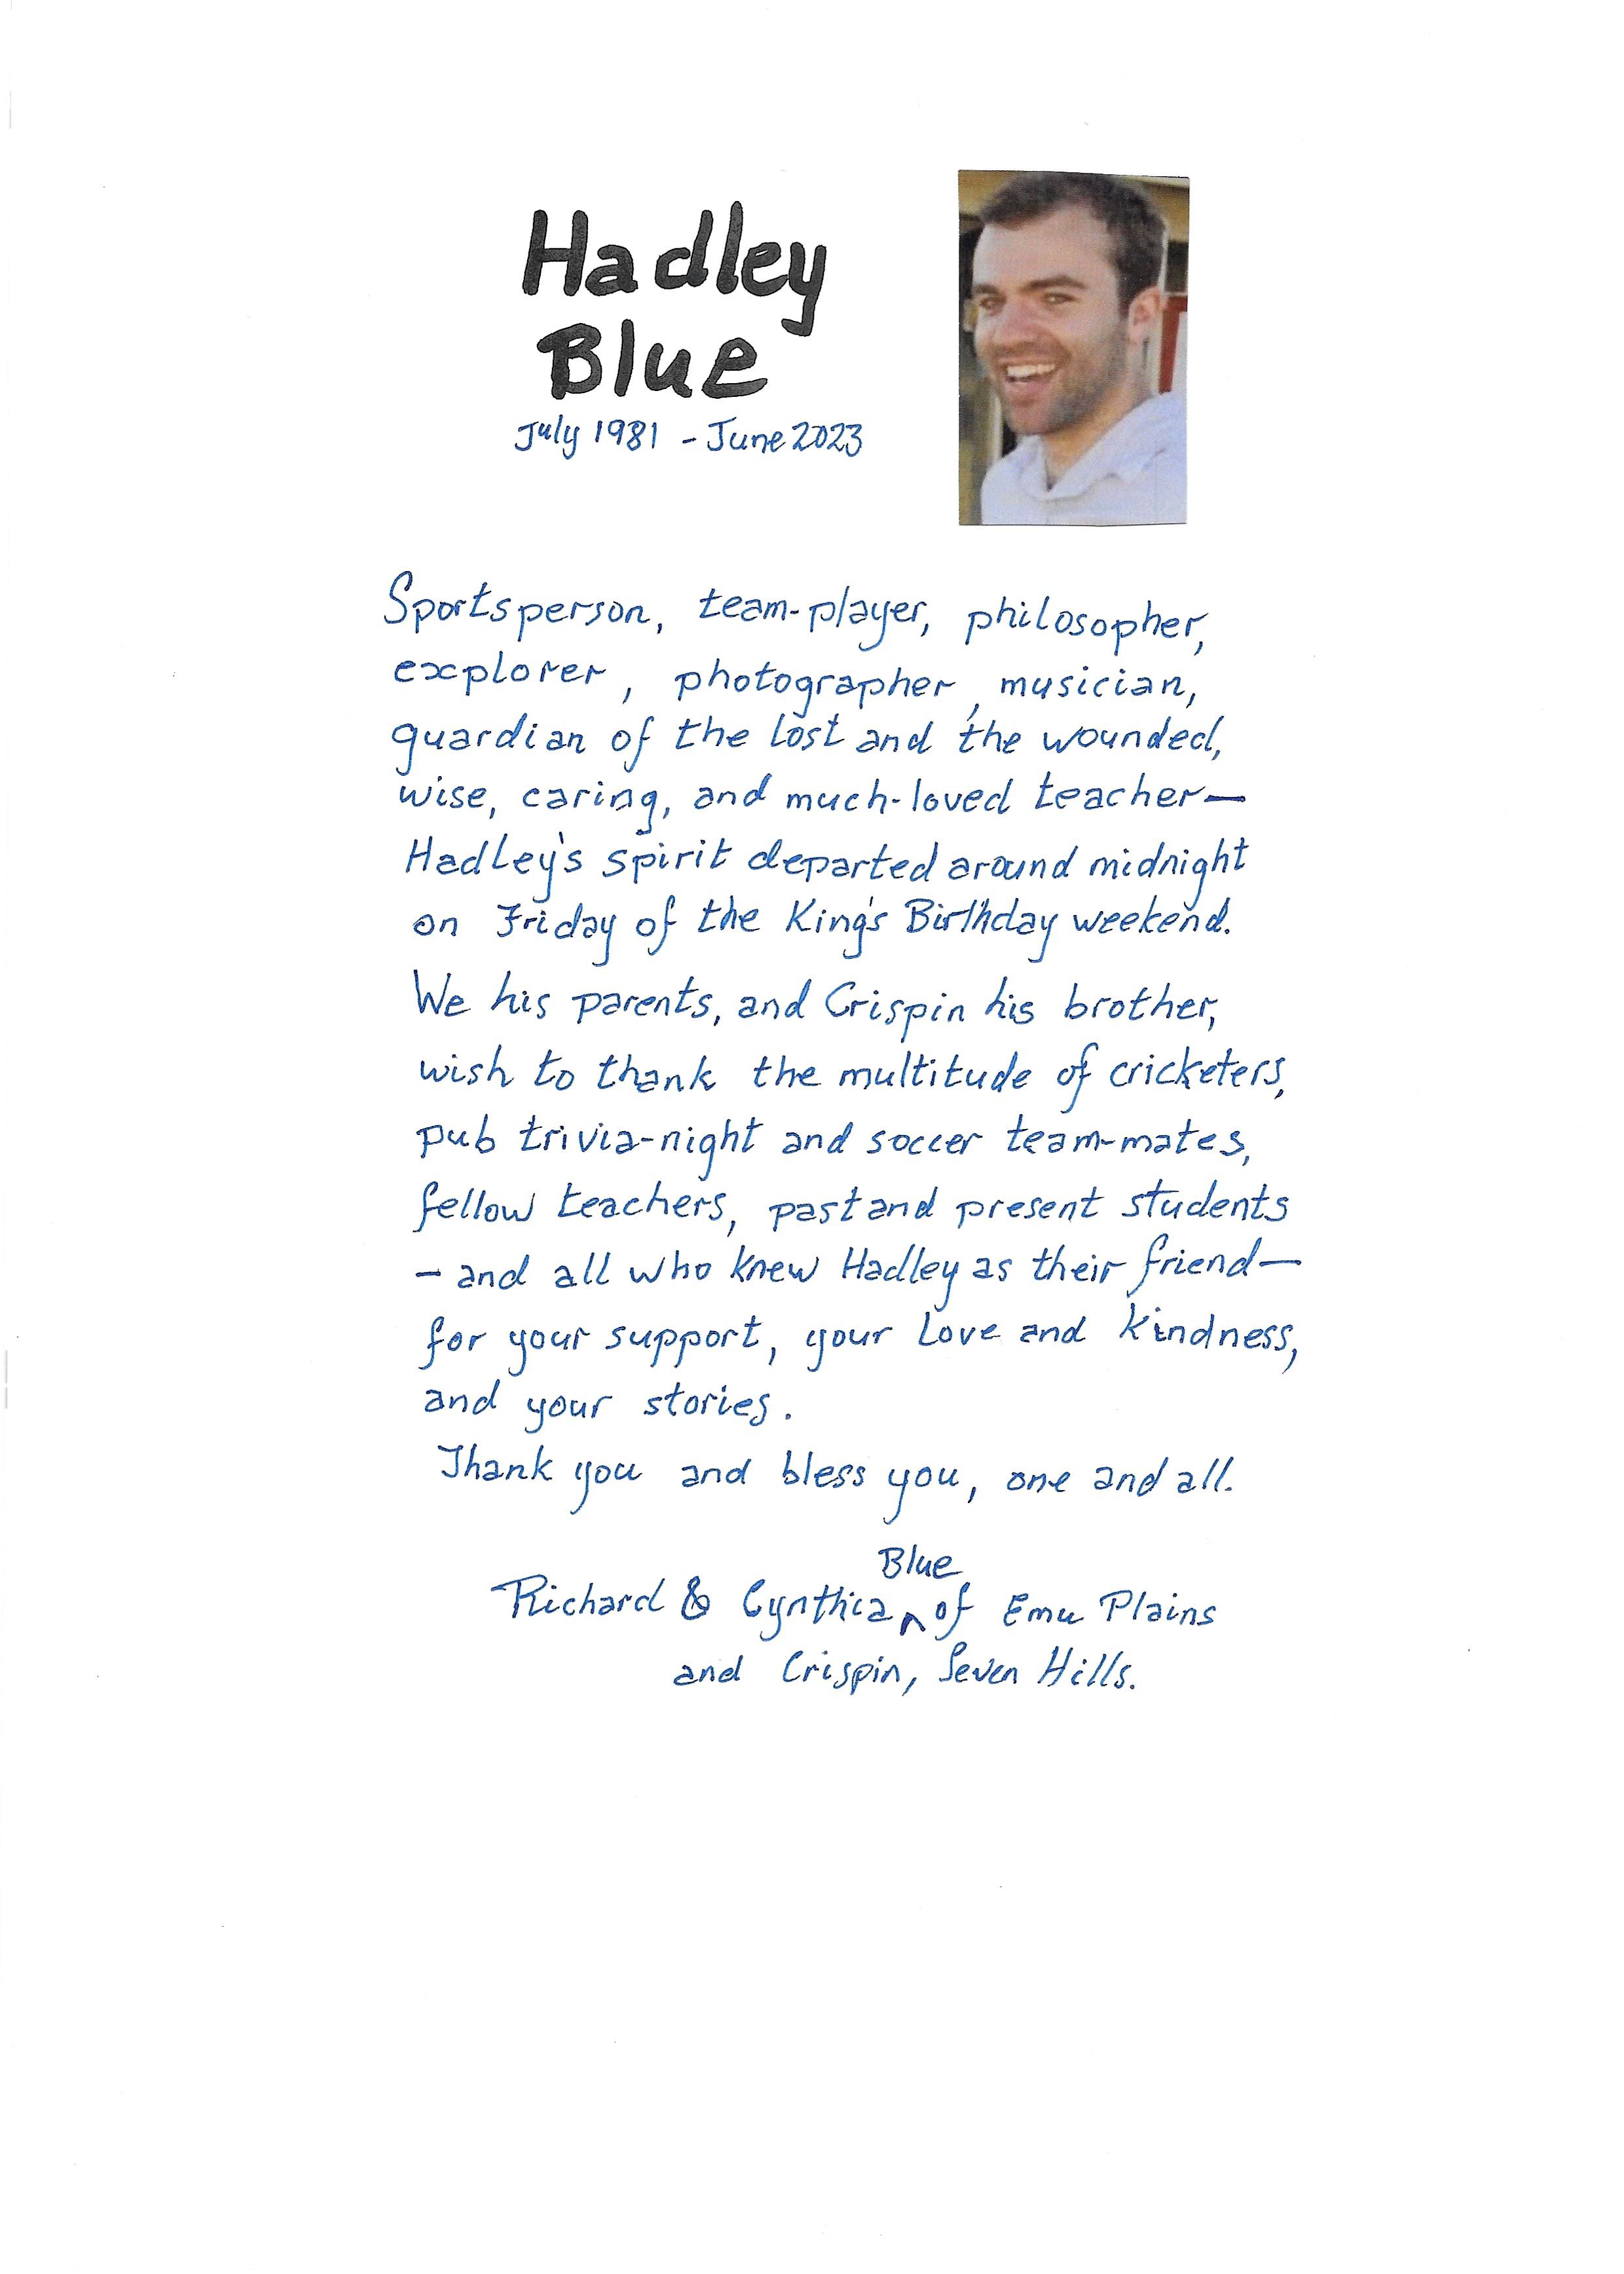 Hadley
Blue
July 1981 - June 2023
Sportsperson, team-player, philosopher,
explorer, photographer, musician,
guardian of the lost and the wounded,
wise, caring, and much-loved teacher—
Hadley's spirit departed around midnight
on Friday of the King's Birthday weekend.
We his parents, and Crispin his brother,
wish to thank the multitude of cricketers,
pub trivia-night and soccer team-mates,
fellow teachers, past and present students
– and all who knew Hadley as their friend—
for your support, your love and kindness,
and your stories.
Thank you and bless you, one and all.
Blue
Richard & Cynthia ^ of Emu Plains
and Crispin, Seven Hills.